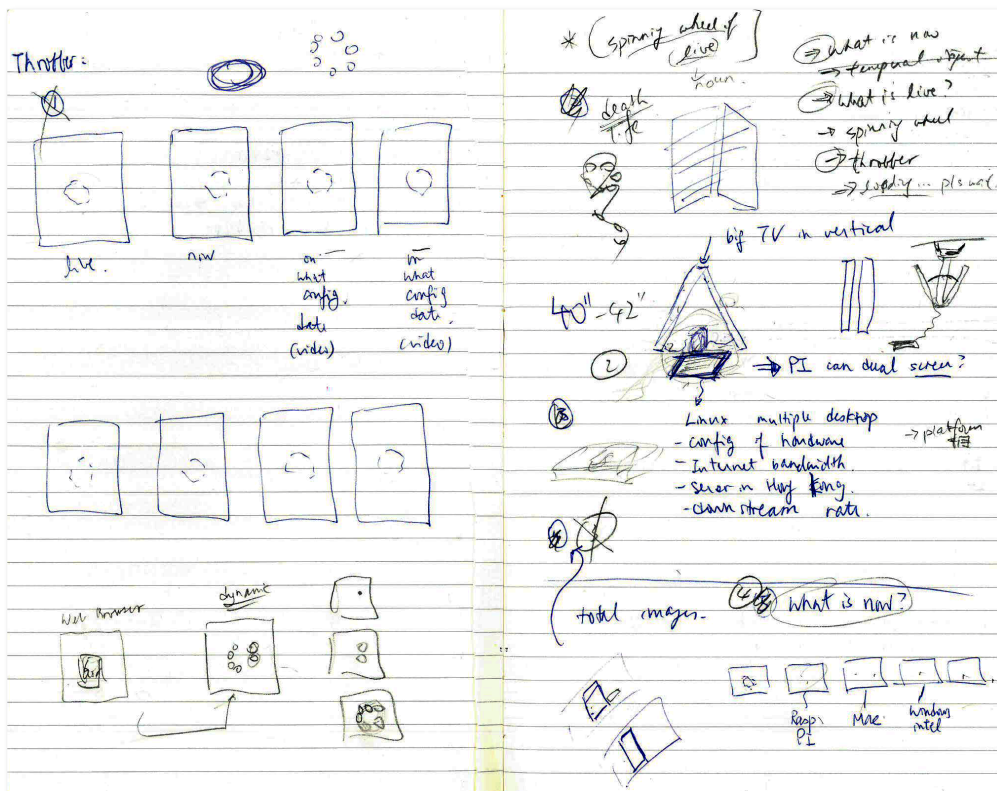 Throtber:
live.
now
on
what
config.
date
(video)
on
what
config
date.
(video)
Web Browser
dynamic
* (spinnig wheel of
live)
noun.
death
life
⇒ what is now
→ temporal object
⇒ what is live?
→ spinnig wheel
→ throbber
→ loading... pls wait.
big TV in vertical
40"-42"
2
⇒ PI can dual screen?
3
Linux multiple desktop
- config of hardware
- Internet bandwidth.
- server in Hong Kong.
- down stream rate.
→ platform
total images.
4 what is now?
Raspi
PI
Mac
windows
intel